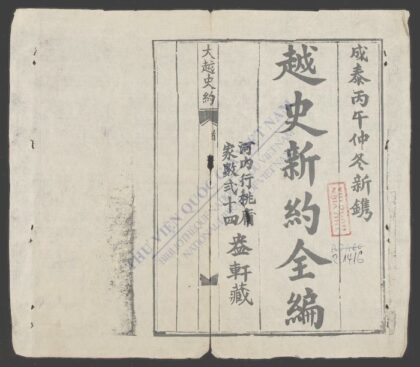 成泰丙午仲冬新鐫
越史新約全編
河內行桃庯
家數弍十四
盎軒藏
大越史約
THƯ VIỆN QUỐC GIA VIỆT NAM
R.1416